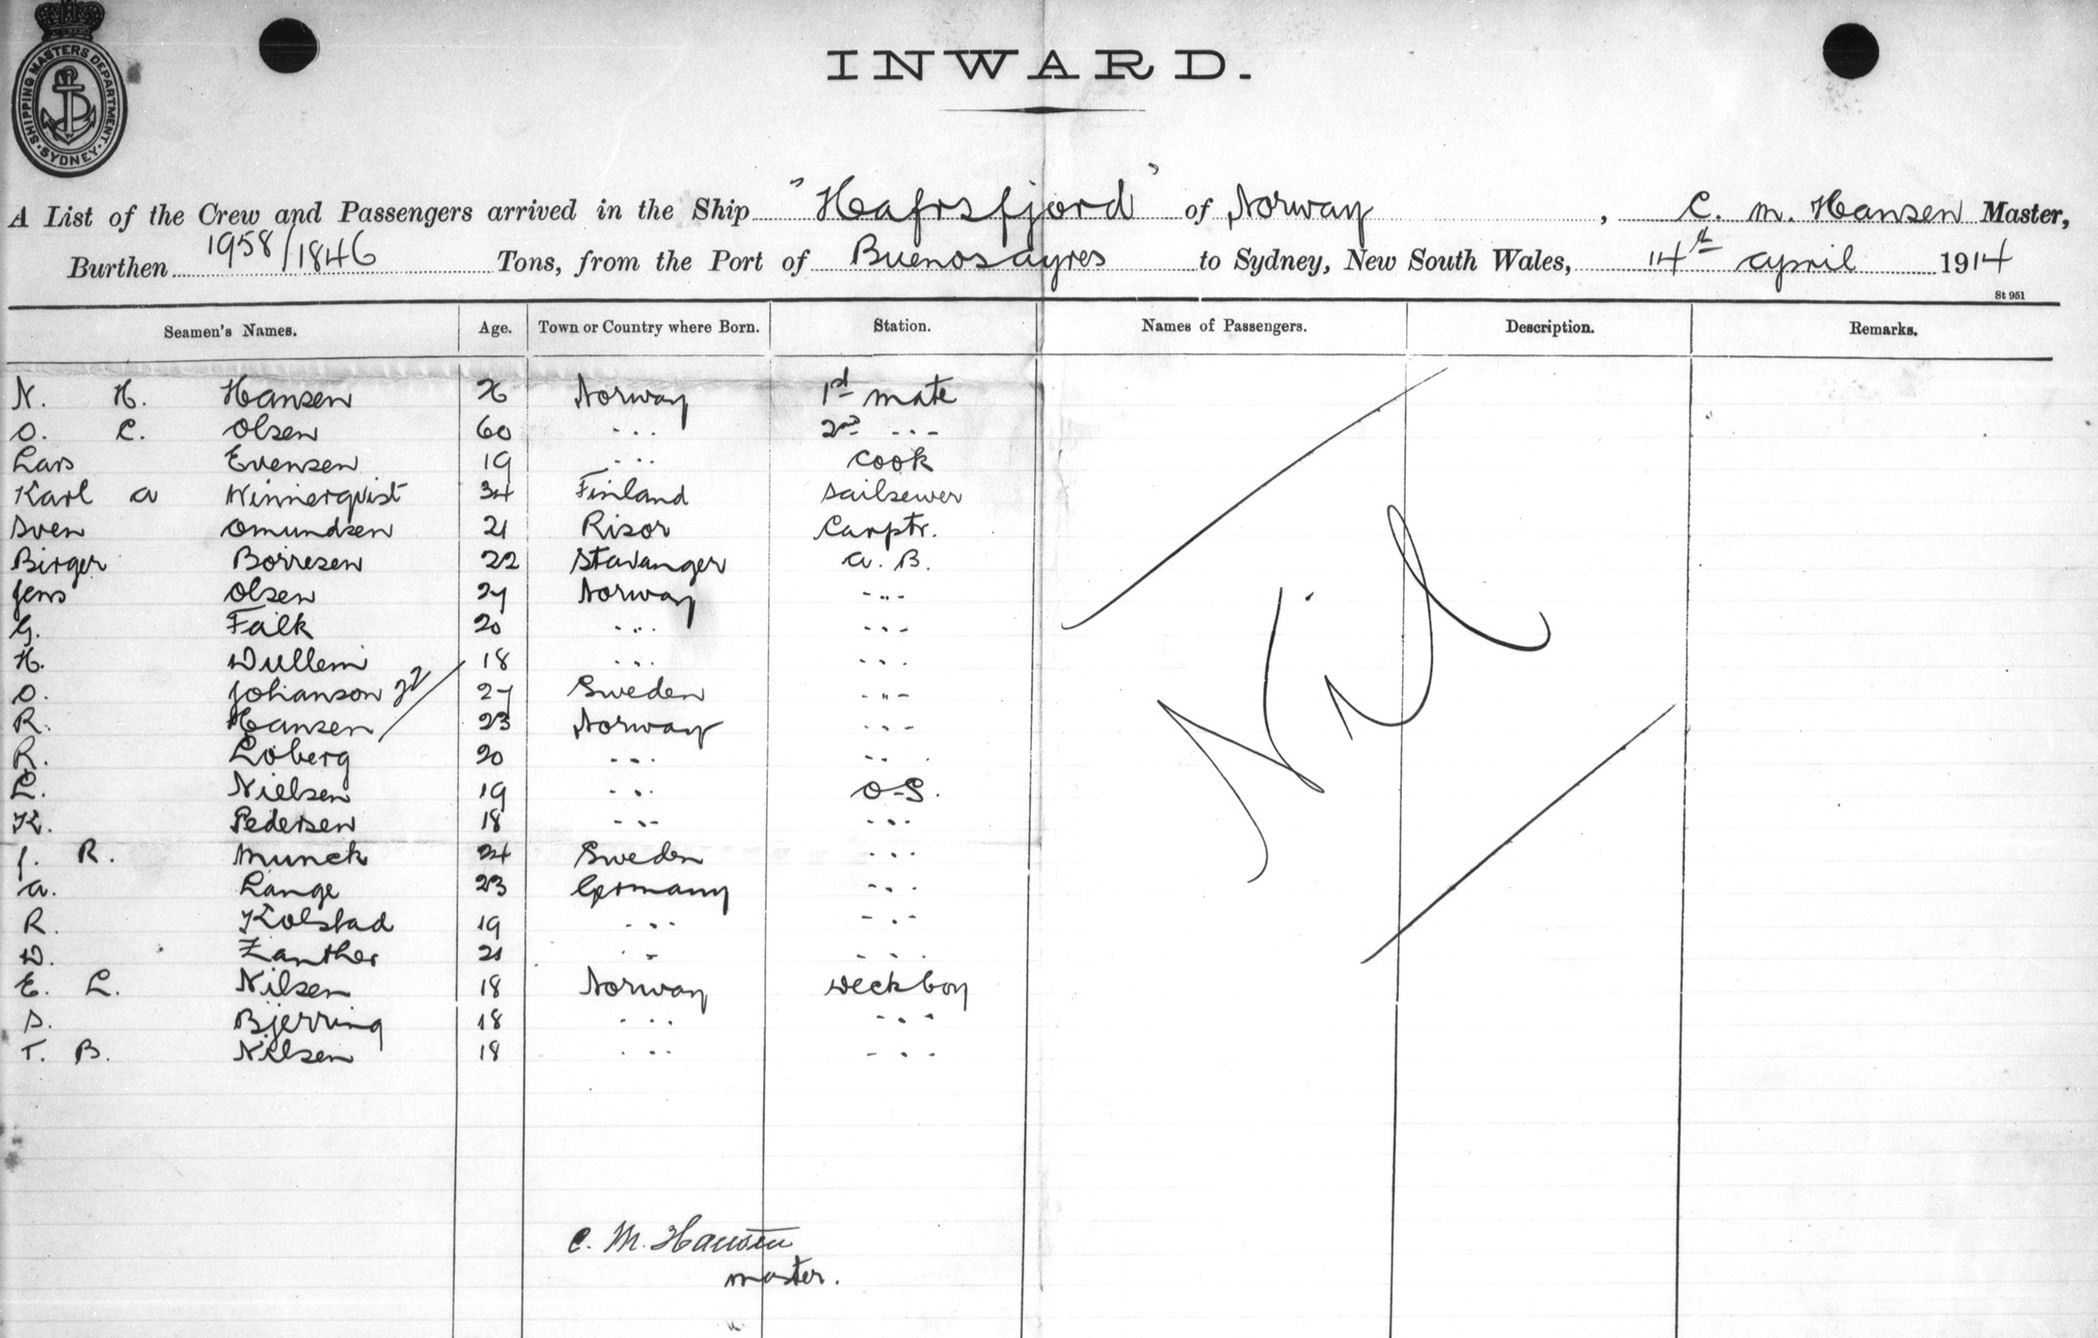 SHIPPING MASTERS DEPARTMENT. SYDNEY.
INWARD.
A List of the Crew and Passengers arrived in the Ship "Hafrsfjord" of Norway, C. M. Hansen Master,
Burthen 1958/1846 Tons, from the Port of Buenos Ayres to Sydney, New South Wales, 14th April 1914
St 951
Seamen's Names. Age. Town or Country where Born. Station. Names of Passengers. Description. Remarks.
N. H. Hansen 26 Norway 1st mate
O. C. Olsen 60 - - - 2nd - - -
Lars Evensen 19 - - - Cook
Karl A Winnerqvist 34 Finland Sailsewer
Sven Omundsen 21 Risor Carptr.
Birger Borresen 22 Stavanger A. B.
Jens Olsen 27 Norway - " -
G. Falk 20 - - - - - -
H. Dullem 18 - - - - - -
O. Johanson 27 Sweden - " -
R. Hansen 23 Norway - - -
22
R. Loberg 20 - - - - - -
L. Nielsen 19 - - - O-S.
K. Pedersen 18 - - - - - -
J. R. Munck 24 Sweden - - -
A. Lange 23 Germany - - -
R. Kolstad 19 - - - - - -
D. Zanther 21 - - - - - -
E. L. Nilsen 18 Norway Deckboy
S. Bjerring 18 - - - - - -
T. B. Nilsen 18 - - - - - -
Nil
C. M. Hansen
Master.